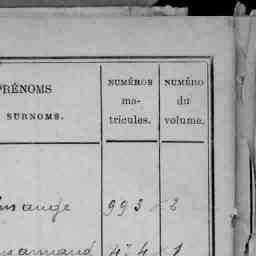 PRÉNOMS
SURNOMS.
NUMÉROS
ma-
tricules.
NUMÉRO
du
volume.
ange 993 2
armand 474 1